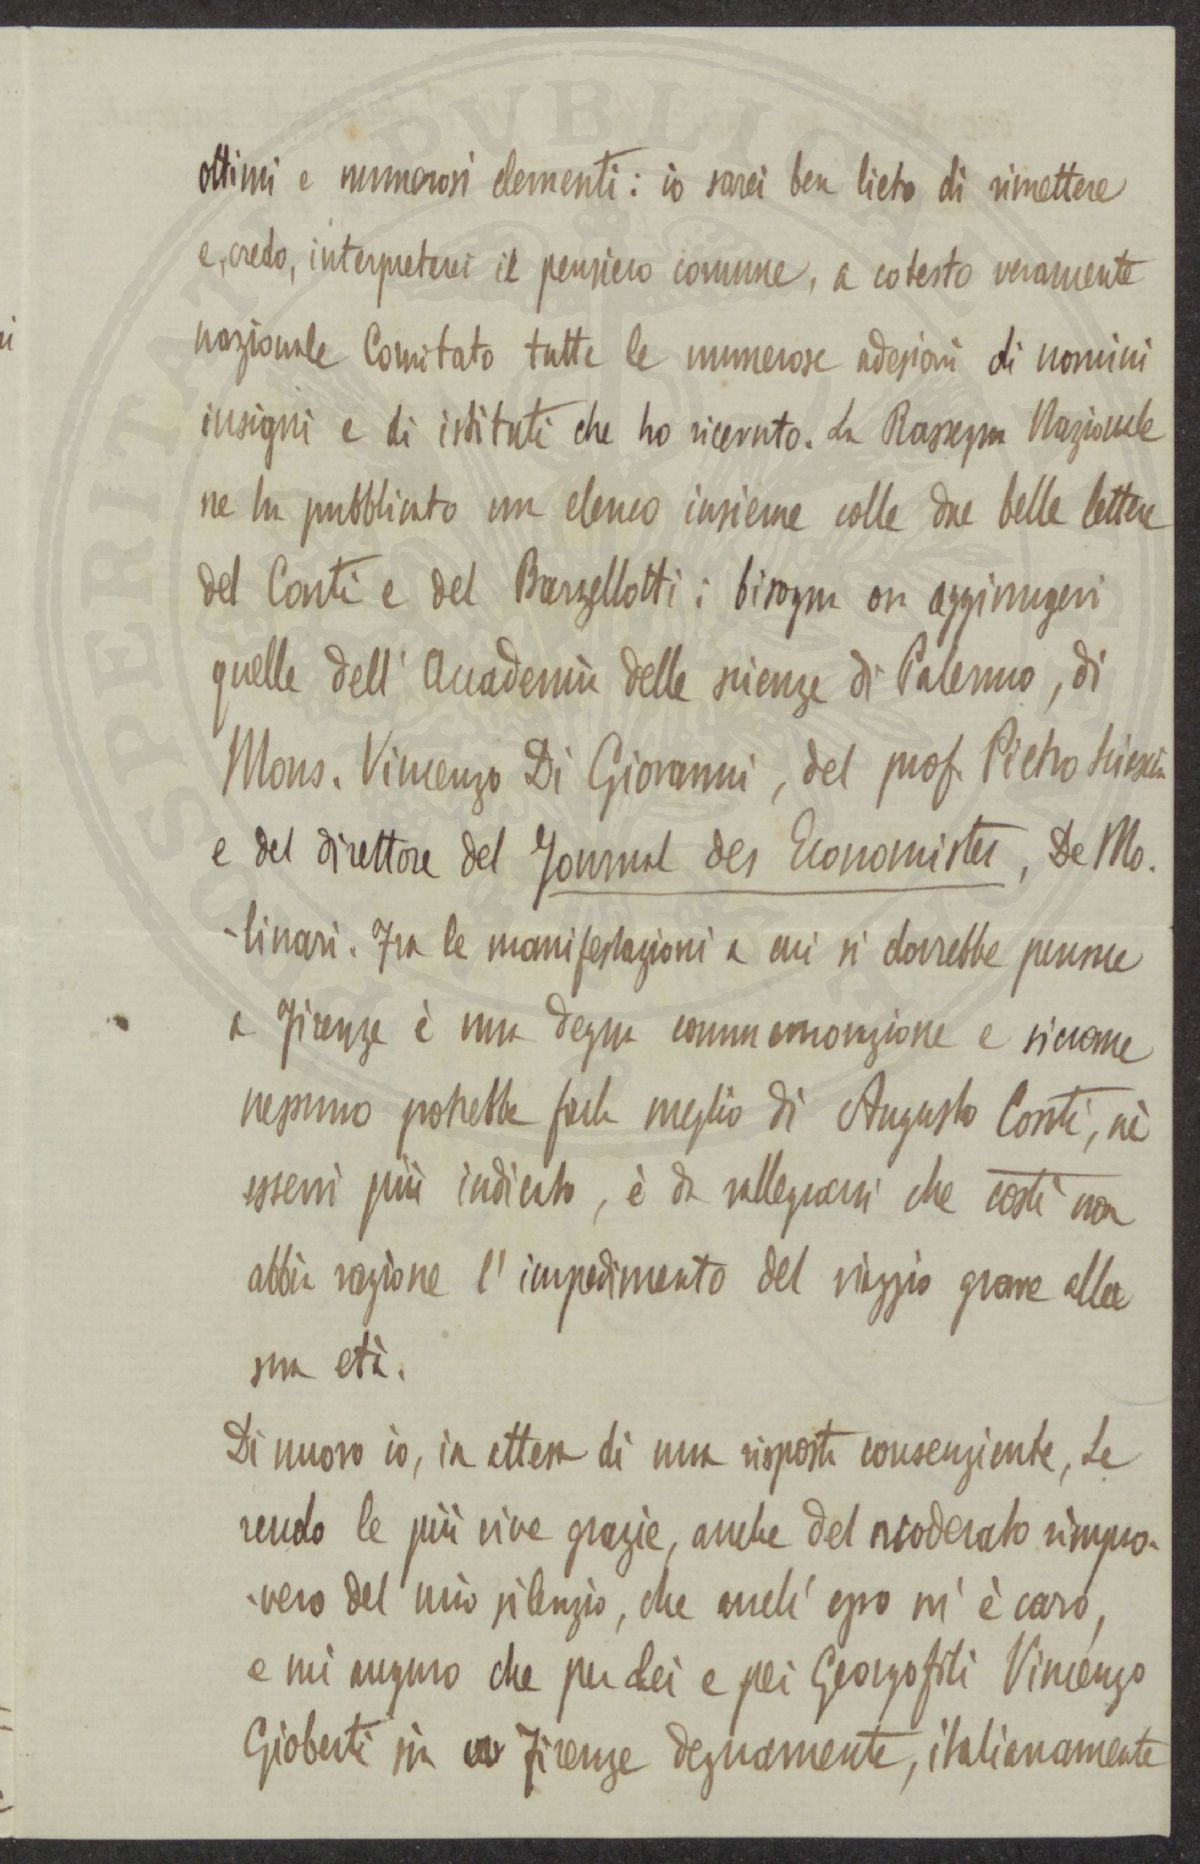 ottimi e numerosi elementi: io sarei ben lieto di rimettere
e, credo, interpreterei il pensiero comune, a cotesto veramente
nazionale Comitato tutte le numerose adesioni di uomini
insigni e di istituti che ho ricevuto. La Rassegna Nazionale
ne ha pubblicato un elenco insieme colle due belle lettere
del Conti e del Barzellotti: bisogna ora aggiungervi
quelle dell'Accademia delle scienze di Palermo, di
Mons. Vincenzo Di Giovanni, del prof. Pietro
e del direttore del Journal des Economistes, De Mo-
-linari. Fra le manifestazioni a cui si dovrebbe pensare
a Firenze è una degna commemorazione e siccome
nessuno potrebbe farla meglio di Augusto Conti, nè
esservi più indicato, è da rallegrarsi che costì non
abbia ragione l'impedimento del viaggio grave alla
sua età.
Di nuovo io, in attesa di una risposta consenziente, Le
rendo le più vive grazie, anche del moderato rimpro-
-vero del mio silenzio, che anch'esso m'è caro,
e mi auguro che per Lei e pei Georgofili Vincenzo
Gioberti sia a Firenze degnamente, italianamente
PVBLICAE
PROSPERITATI